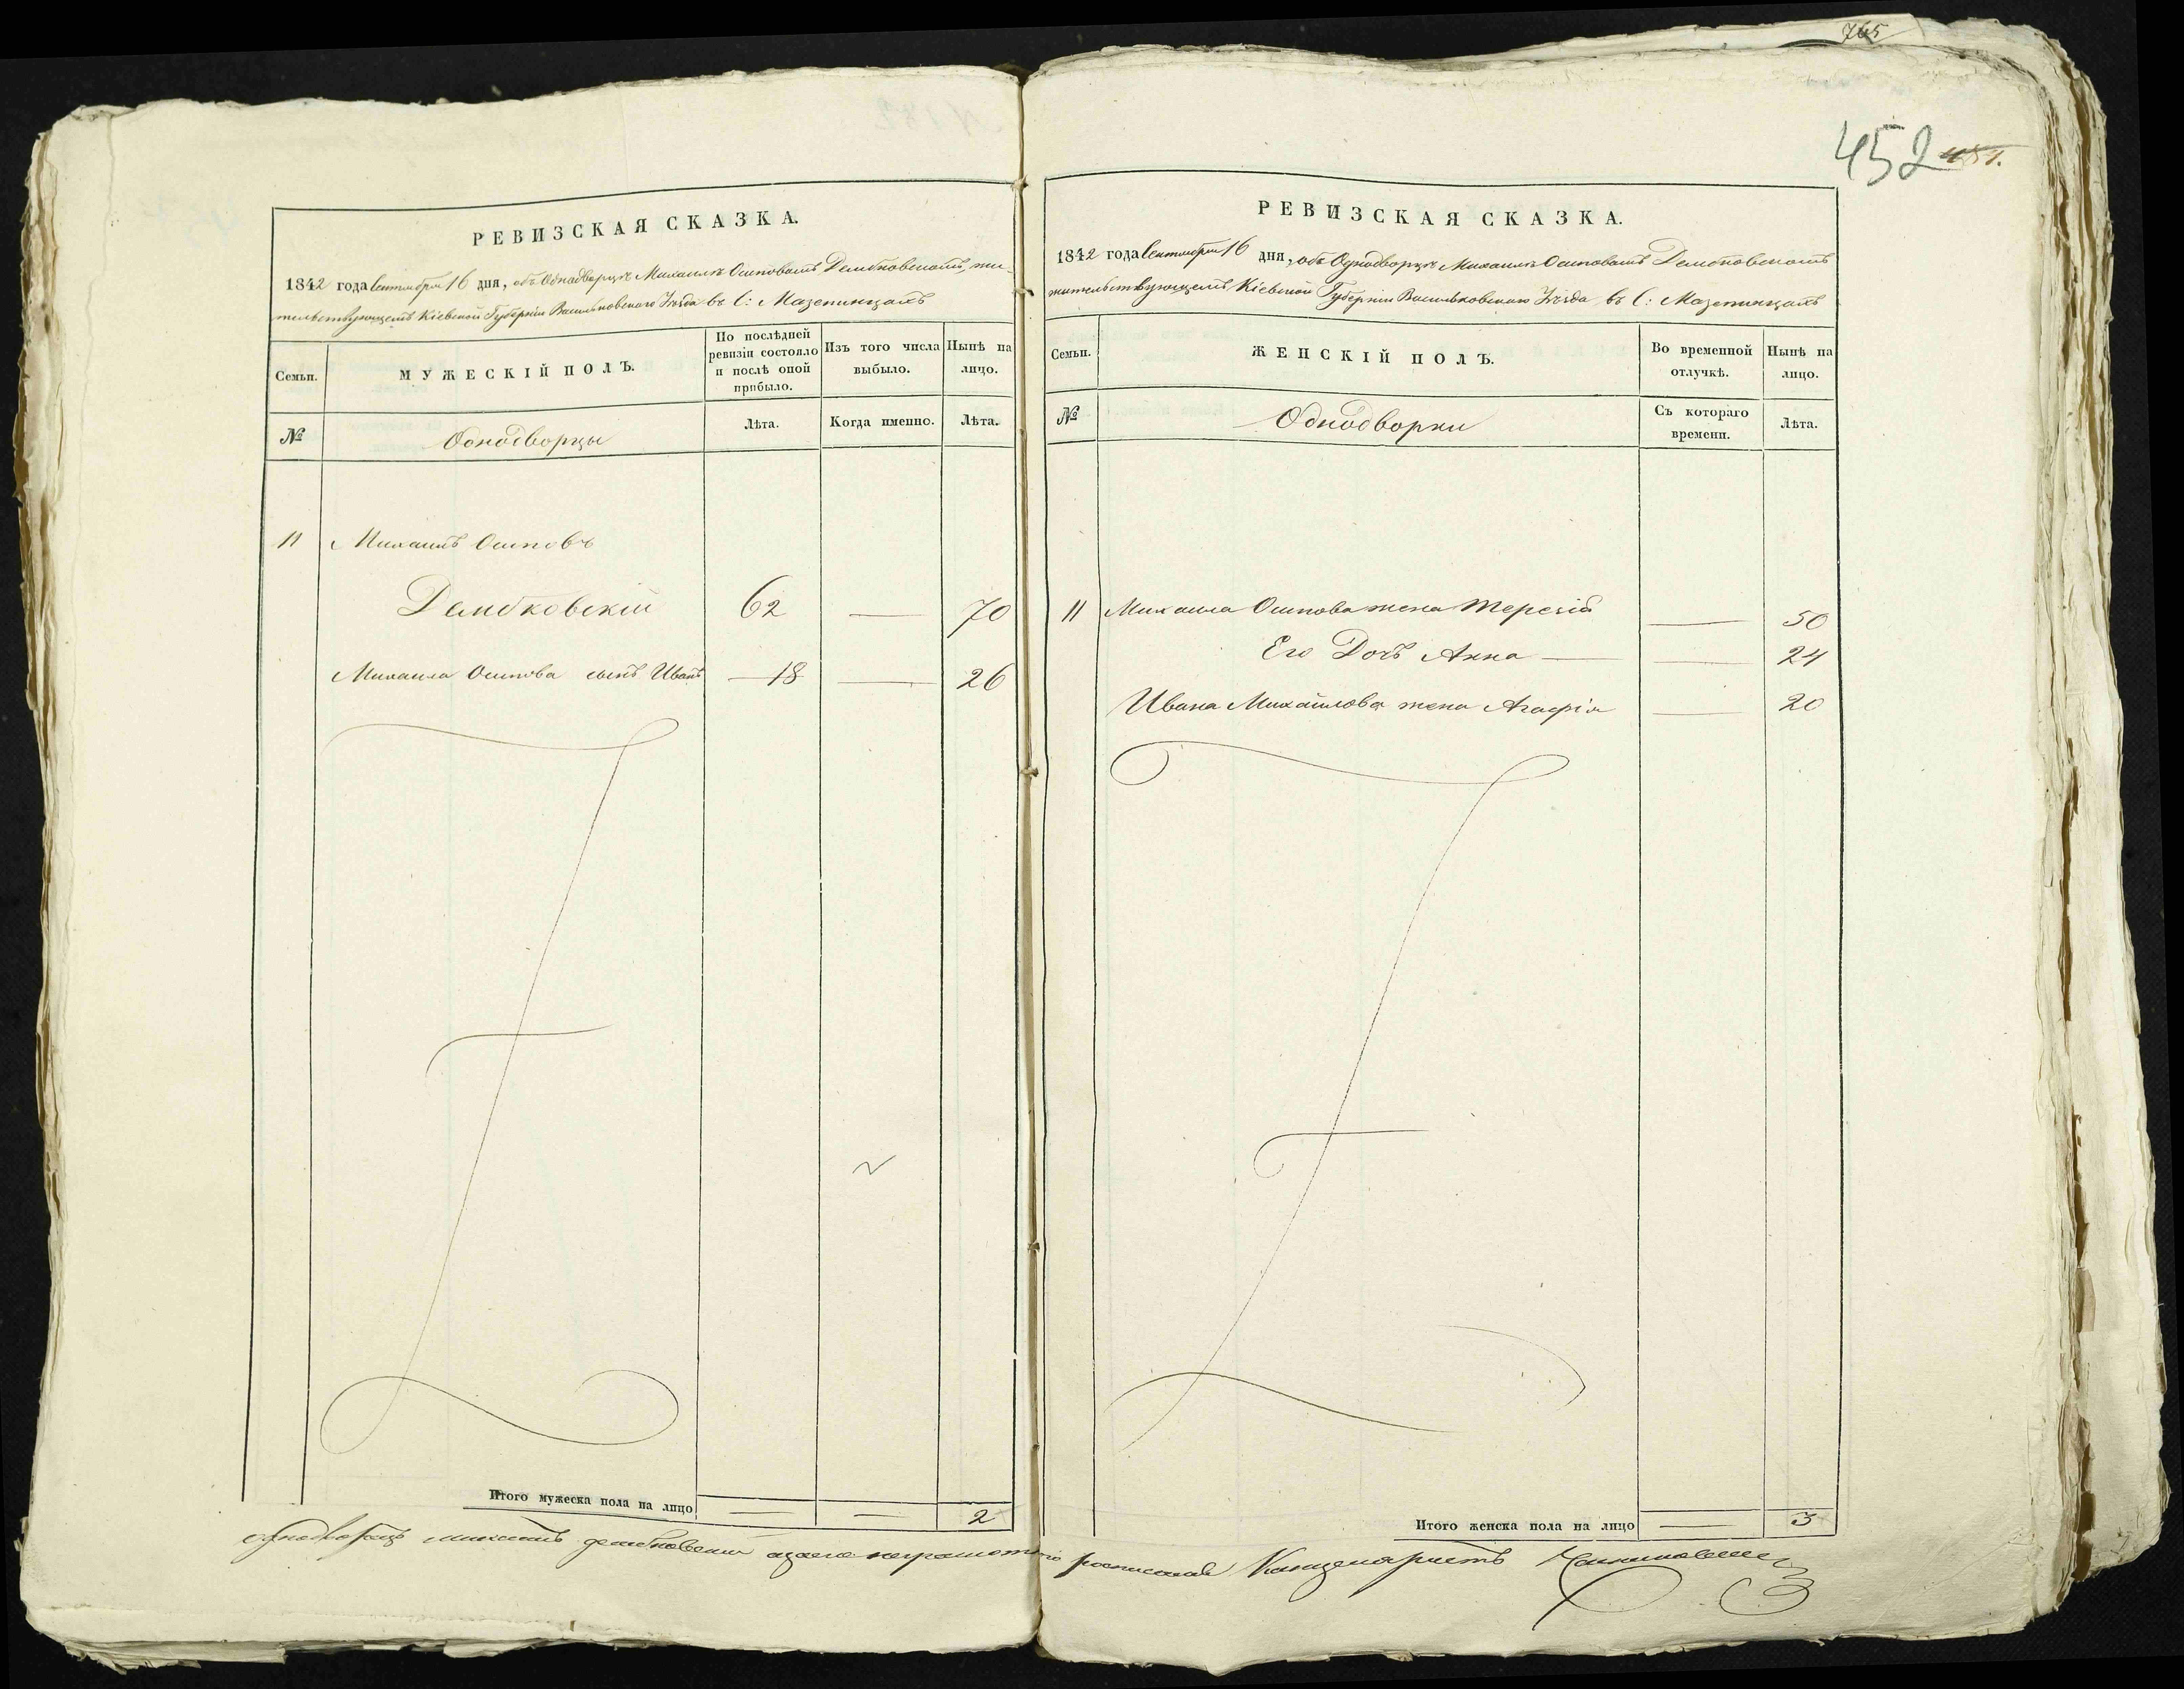 765
452 451.
РЕВИЗСКАЯ СКАЗКА.
1842 года Сентября 16 дня, объ Однодворцѣ Михаилѣ Осиповомъ Дембковскомъ, жи-
тельствующемъ Кіевской Губерніи Васильковскаго Уѣзда въ С: Мазепинцахъ
Семьи.
МУЖЕСКІЙ ПОЛЪ.
По послѣдней ревизіи состояло и послѣ оной прибыло.
Изъ того числа выбыло.
Нынѣ на лицо.
№
Однодворцы
Лѣта.
Когда именно.
Лѣта.
11 Михаилъ Осиповъ
Дембковскій 62 — 70
Михаила Осипова сынъ Иванъ — 18 — 26
2
Итого мужеска пола на лицо — — 2
РЕВИЗСКАЯ СКАЗКА.
1842 года Сентября 16 дня, объ Однодворцѣ Михаилѣ Осиповомъ Дембковскомъ
жительствующемъ Кіевской Губерніи Васильковскаго Уѣзда въ С: Мазепинцахъ
Семьи.
ЖЕНСКІЙ ПОЛЪ.
Во временной отлучкѣ.
Нынѣ на лицо.
№
Однодворки
Съ котораго времени.
Лѣта.
11 Михаила Осипова жена Терезія — 50
Его Дочь Анна — — 24
Ивана Михайлова жена Агафія — 20
Итого женска пола на лицо — 3
однодворецъ михаилъ дембковский а за его неграмотного росписался Канцеляристъ